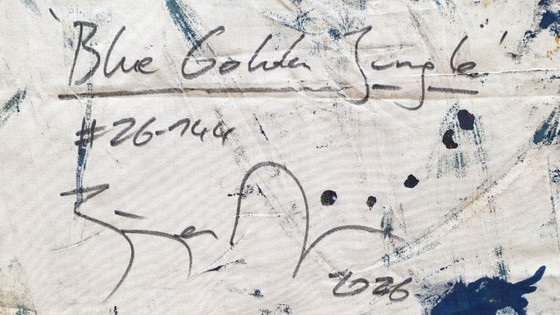 'Blue Golden Jungle'
#26-144
2026